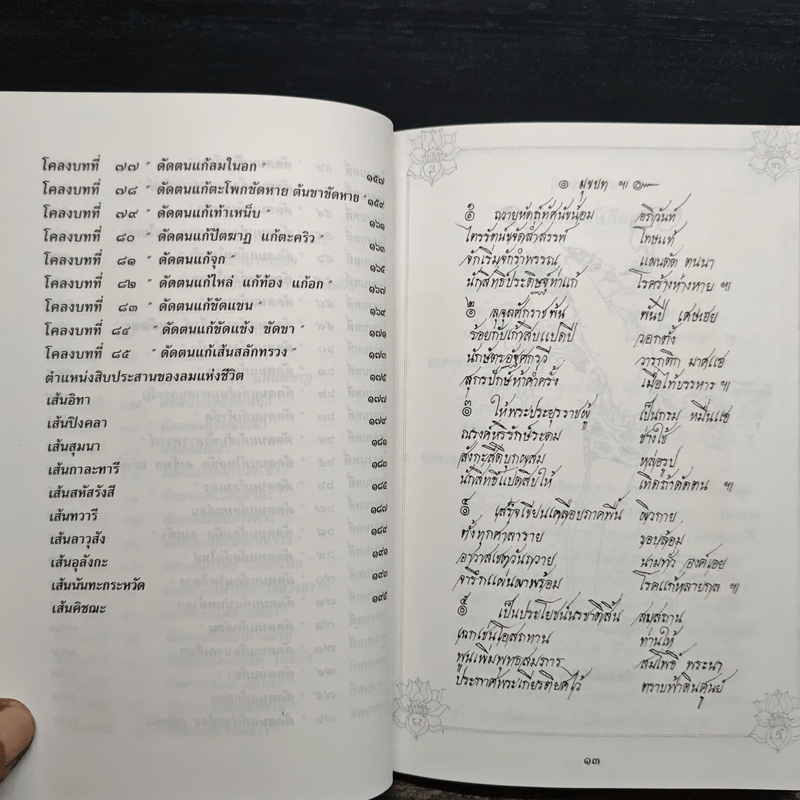 โคลงบทที่ ๗๗ " ดัดตนแก้ลมในอก " ๑๕๗
โคลงบทที่ ๗๘ " ดัดตนแก้ตะโพกขัดหาย ต้นขาขัดหาย " ๑๕๙
โคลงบทที่ ๗๙ " ดัดตนแก้เท้าเหน็บ " ๑๖๑
โคลงบทที่ ๘๐ " ดัดตนแก้ปัตฆาฏ แก้ตะคริว " ๑๖๓
โคลงบทที่ ๘๑ " ดัดตนแก้จุก " ๑๖๕
โคลงบทที่ ๘๒ " ดัดตนแก้ไหล่ แก้ท้อง แก้อก " ๑๖๗
โคลงบทที่ ๘๓ " ดัดตนแก้ขัดแขน " ๑๖๙
โคลงบทที่ ๘๔ " ดัดตนแก้ขัดแข้ง ขัดขา " ๑๗๑
โคลงบทที่ ๘๕ " ดัดตนแก้เส้นสลักทรวง " ๑๗๓
ตำแหน่งสิบประสานของลมแห่งชีวิต ๑๗๕
เส้นอิทา ๑๗๗
เส้นปิงคลา ๑๗๙
เส้นสุมนา ๑๘๑
เส้นกาละทารี ๑๘๓
เส้นสหัสรังสี ๑๘๕
เส้นทวารี ๑๘๗
เส้นลาวุสัง ๑๘๙
เส้นอุลังกะ ๑๙๑
เส้นนันทะกระหวัด ๑๙๓
เส้นคิชฌะ ๑๙๕
๏ มุขบท ฯ ๛
๑ ถวายหัตถ์ทัศนัขน้อม อภิวันท์
ไตรรัตน์ขจัดสำสรรพ์ โทษแท้
จักเริ่มจักรำพรรณ แผนดัด ตนนา
นักสิทธิ์ประดิษฐ์ท่าแก้ โรคร้างห่างหาย ฯ
๒ ลุจุลศักราชพัน พันปี เศษเฮย
ร้อยกับเก้าสิบแปดปี วอกตั้ง
นักษัตรอัฐศกรวี วารกติก มาศแฮ
สุกรปักษ์ห้าค่ำครั้ง เมื่อไท้บรรหาร ฯ
๓ ให้พระประยุรราชผู้ เป็นกรม หมื่นแฮ
ณรงค์หริรักษ์รดม ช่างใช้
สังกะสีดีบุกผสม หล่อรูป
นักสิทธิ์แปดสิบให้ เทิดถ้าดัดตน ฯ
๔ เสร็จเขียนเคลือบภาคพื้น ผิวกาย
ตั้งทุกศาลาราย รอบล้อม
อาวาสเชตุวันถวาย นามทั่ว องค์เอย
จารึกแผ่นผาพร้อม โรคแก้หลายกล ฯ
๕ เป็นประโยชน์นรชาติสิ้น สบสถาน
เฉกเช่นโอสถทาน ท่านให้
พูนเพิ่มพุทธสมภาร สมโพธิ์ พระนา
ประกาศพระเกียรติยศไว้ ตราบฟ้าดินศูนย์
๑๓